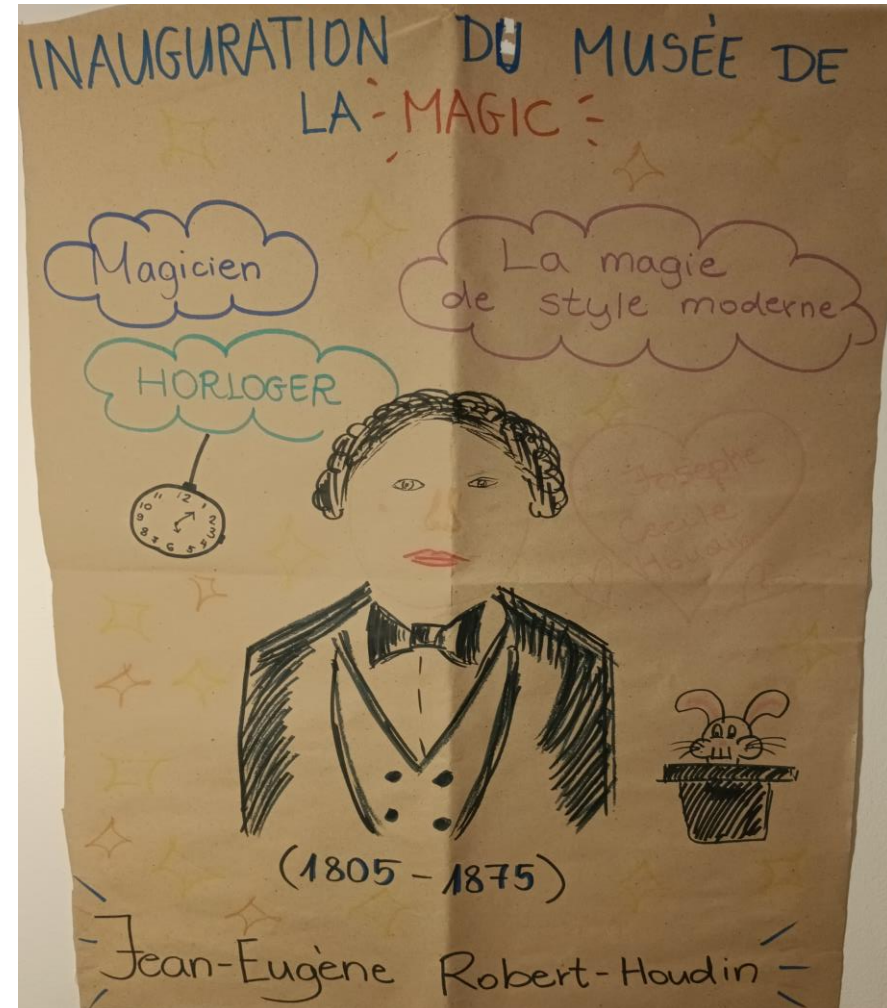 INAUGURATION DU MUSÉE DE
LA MAGIC
Magicien
La magie
de style moderne
HORLOGER
12
1
2
3
4
5
6
7
8
9
10
11
Josephe
Cécile
Houdin
(1805-1875)
Jean-Eugène Robert-Houdin